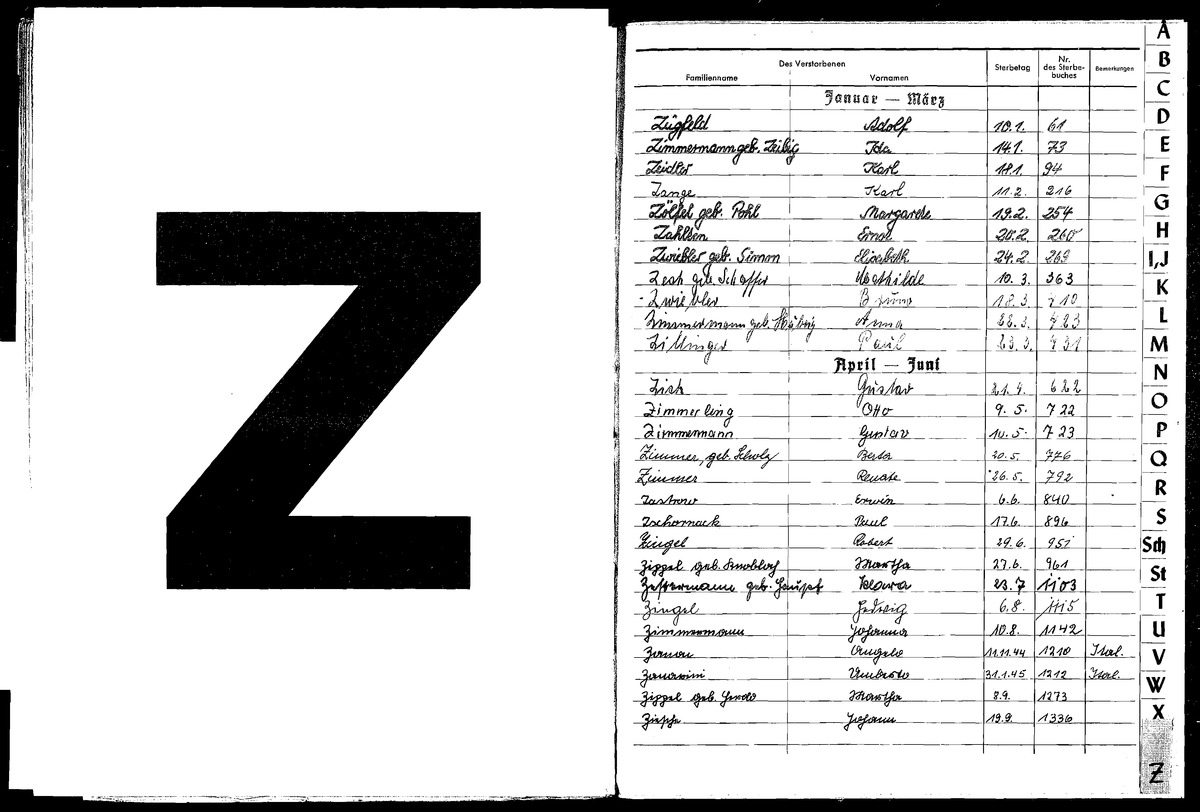 Z
Des Verstorbenen
Familienname Vornamen Sterbetag Nr. des Sterbe-buches Bemerkungen
Januar — März
Zügfeld Adolf 10.1. 61
Zimmermann geb. Zeibig Ida 14.1. 73
Zeidler Karl 18.1. 94
Zange Karl 11.2. 216
Zölfel geb. Pohl Margarete 19.2. 254
Zahlten Ernst 20.2. 260
Zwiebler geb. Simon Elisabeth 24.2. 269
Zech geb. Schaffer Mathilde 10.3. 363
Zwiebler Bruno 18.3. 410
Zimmermann geb. Anna 22.3. 423
Zillinger Paul 23.3. 431
April — Juni
Zich Gustav 21.4. 622
Zimmerling Otto 9.5. 722
Zimmermann Gustav 10.5. 723
Zimmer, geb. Scholz Berta 20.5. 776
Zimmer Renate 26.5. 792
Zastrow Erwin 6.6. 840
Zschornack Paul 17.6. 896
Zingel Robert 29.6. 951
Zippel geb. Knobloch Martha 27.6. 961
Zestermann geb. Haupt Klara 23.7 1103
Zingel Hedwig 6.8. 1115
Zimmermann Johanna 10.8. 1142
Zanon Angelo 11.11.44 1210 Ital.
Zanarini Umberto 31.1.45 1212 Ital.
Zippel geb. Martha 8.9. 1273
Zische Johann 19.9. 1336
A
B
C
D
E
F
G
H
I,J
K
L
M
N
O
P
Q
R
S
Sch
St
T
U
V
W
X
Z